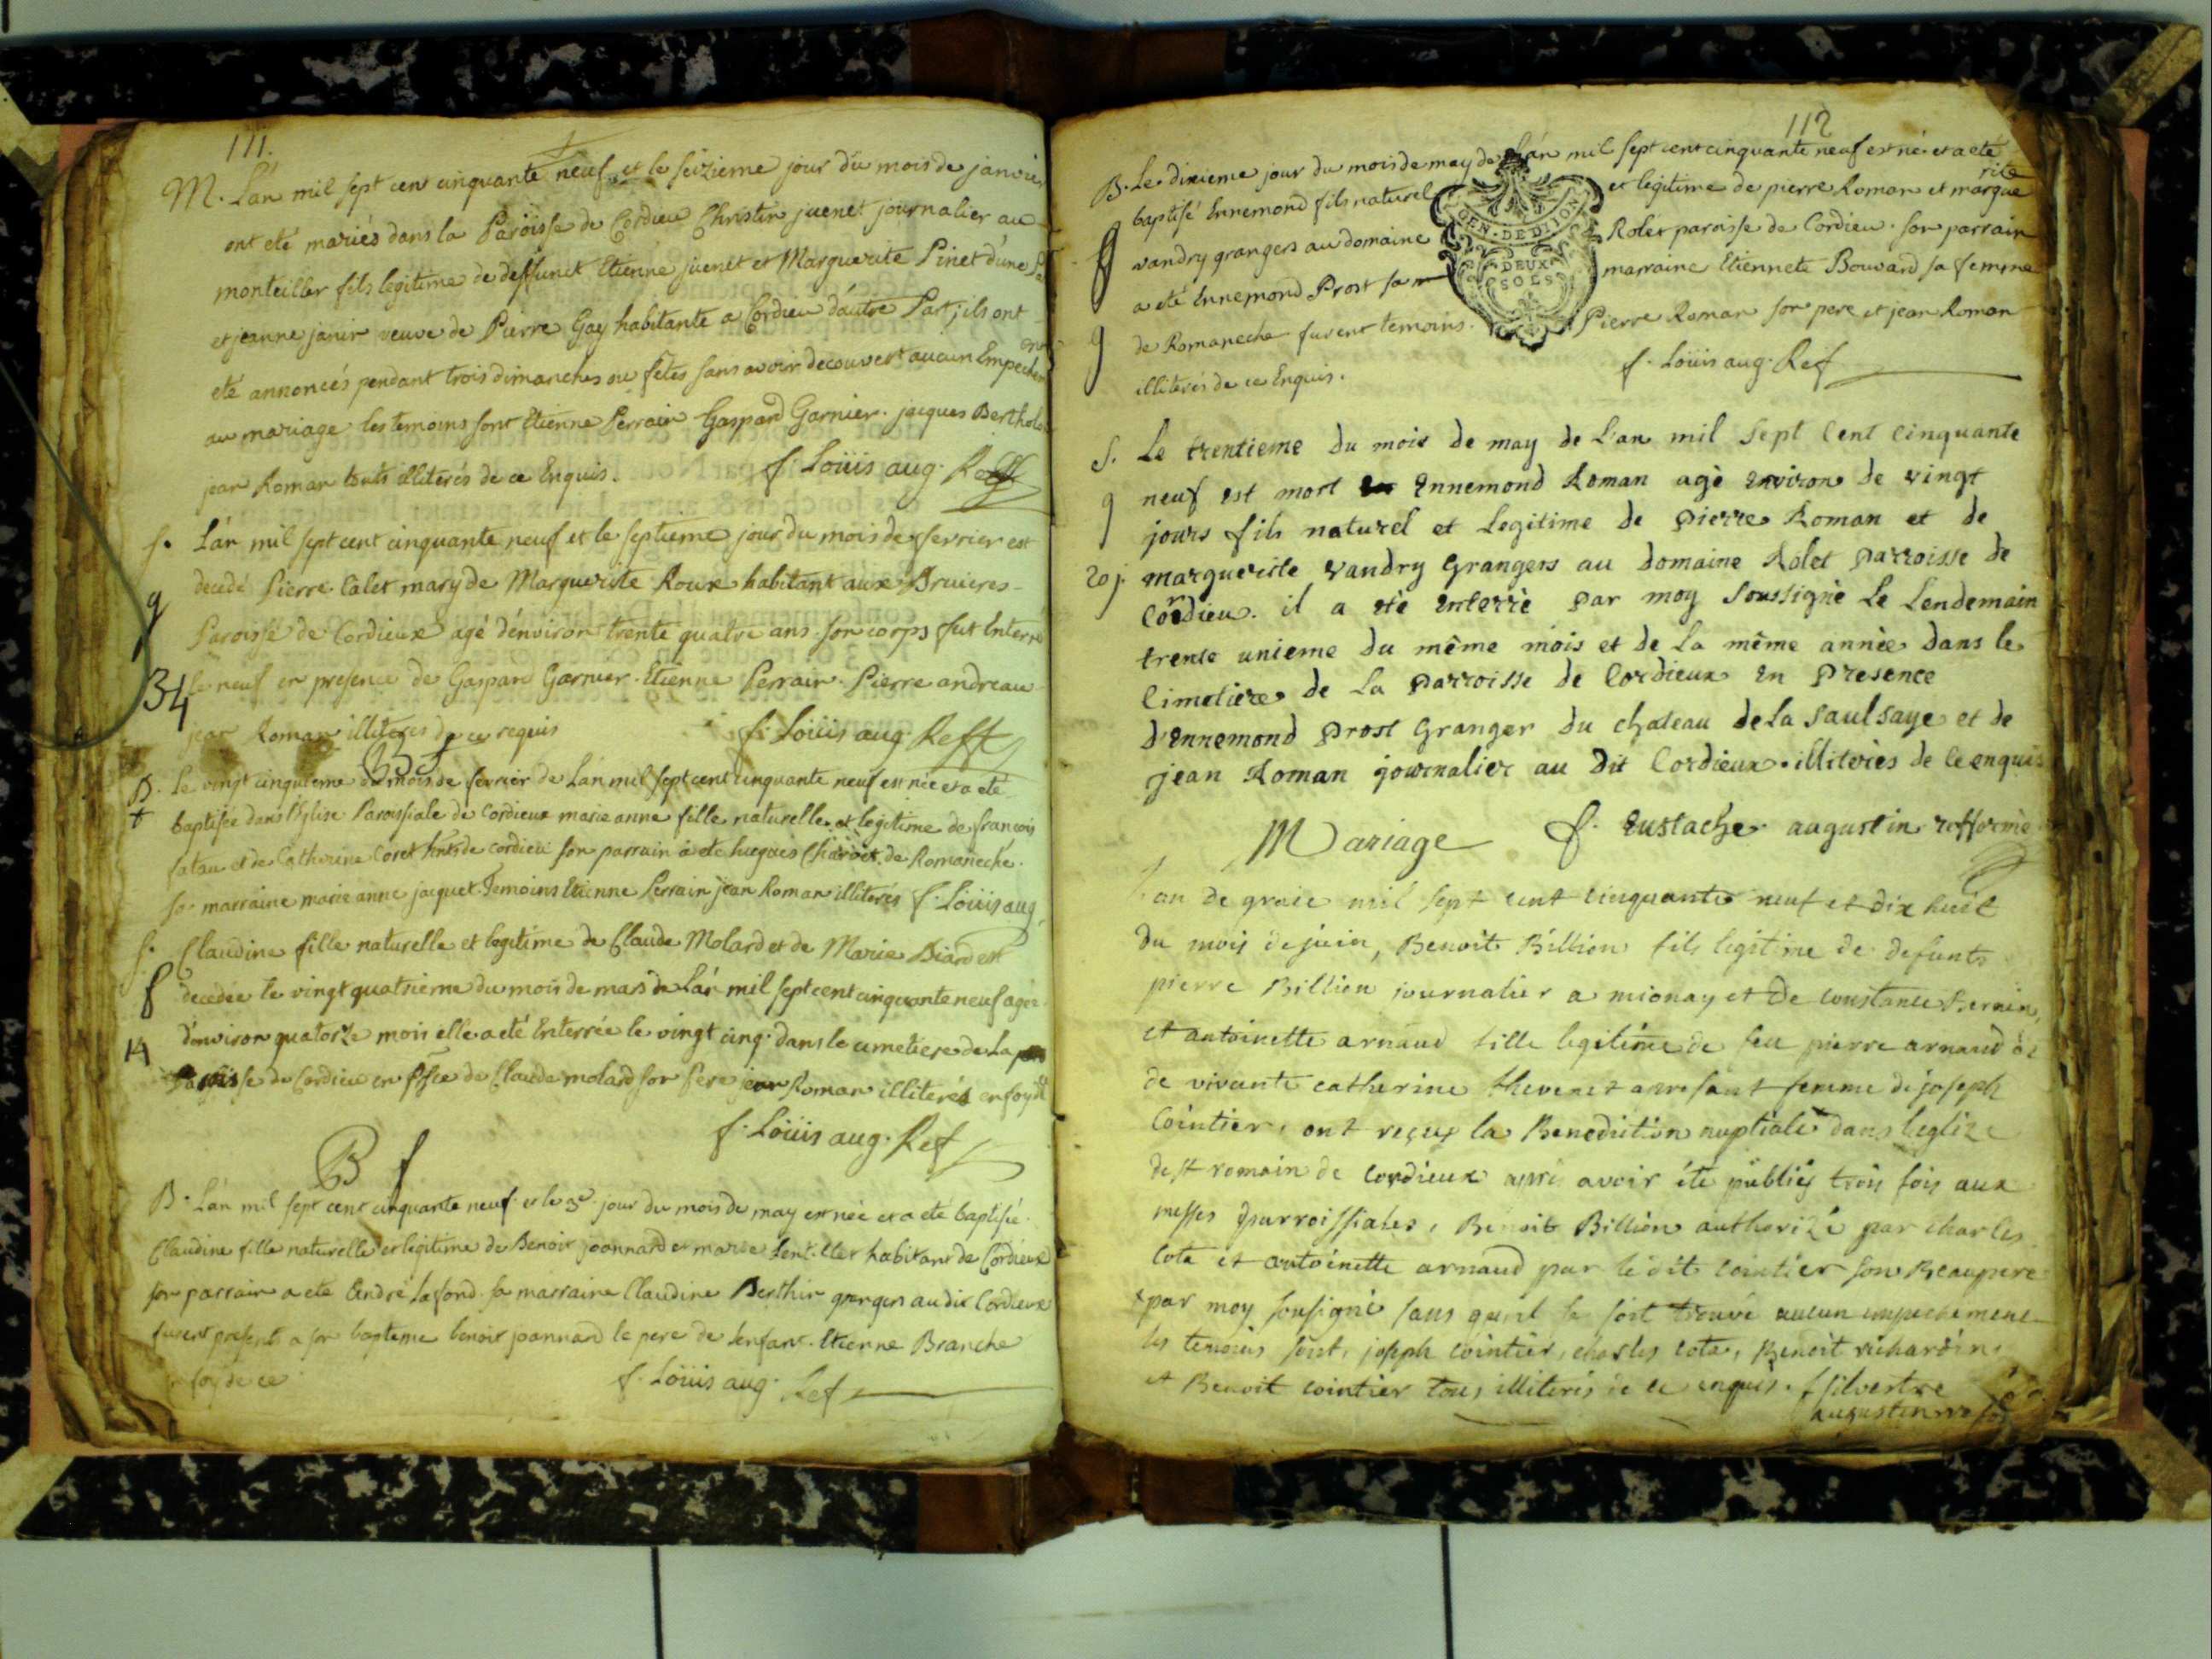 111.
M. L'an mil sept cent cinquante neuf et le seizieme jour du mois de janvier
ont eté mariés dans la Paroisse de Cordieu Christin juenet journalier au
monteiller fils legitime de deffunct Etienne juenet et Marguerite Pinet d'une
et jeanne janin veuve de Pierre Gay habitante a Cordieu d'autre Part; ils ont
eté annoncés pendant trois dimanches ou fêtes sans avoir decouvert aucun Empechem
ent
au mariage les temoins sont Etienne Perrain Gaspard Garnier. jacques Berthol
jean Roman touts illiterés de ce Enquis. f. Loüis aug. Reff
S. L'an mil sept cent cinquante neuf et le septieme jour du mois de fevrier est
decedé Pierre Calet mary de Marguerite Roux habitant aux Bruieres
g
Paroisse de Cordieux agé d'environ trente quatre ans. son corps fut Enterré
34 le neuf en presence de Gaspard Garnier. Etienne Perrain. Pierre andreau
jean Roman illiterés de ce requis f. Loüis aug. Reff
B f
B. Le vingt cinquieme du mois de fevrier de L'an mil sept cent cinquante neuf est née et a eté
baptisée dans l'Eglise Paroissiale de Cordieux marie anne fille naturelle et legitime de françois
falau et de Catherine Coret hnts de cordieu son parrain a eté hugues Charvet de Romaneche.
sa marraine marie anne jacquet. Temoins Etienne Perrain jean Roman illiterés f. Loüis aug
S. Claudine fille naturelle et legitime de Claude Molard et de Marie Biard est
f decedée le vingt quatrieme du mois de mars de L'an mil sept cent cinquante neuf agée
14 d'environ quatorze mois elle a eté Enterrée le vingt cinq. dans le cimetiere de La
Paroisse de Cordieu en psce de Claude molard son Pere jean Roman illiterés en foy
f. Loüis aug. Ref
B f
B. L'an mil sept cent cinquante neuf et le 3e jour du mois de may est née et a eté baptisé
Claudine fille naturelle et legitime de Benoit joannard et marie habitans de Cordieux
son parrain a eté André Lafond. sa marraine Claudine Berthin grangers au dit Cordieux
furent presents a son bapteme benoit joannard le pere de l'enfant. Etienne Branche
en foy de ce f. Loüis aug. Ref
112
B. Le dixieme jour du mois de may de L'an mil sept cent cinquante neuf est né et a eté
rite
baptisé Ennemond fils naturel et legitime de pierre Roman et margue
vandry grangers au domaine Rolet paroisse de Cordieu. son parrain
a eté Ennemond Prost sa marraine Etiennete Bouvard sa femme
de Romaneche furent temoins. Pierre Roman son pere et jean Roman
illiterés de ce Enquis. f. Loüis aug. Ref
GEN. DE DIJON
DEUX
SOLS
S. Le trentieme du mois de may de L'an mil Sept Cent Cinquante
g neuf est mort Ennemond Roman agè environ de vingt
jours fils naturel et Legitime de pierre Roman et de
20 j. marguerite vandry Grangers au domaine Rolet parroisse de
Cordieu. il a etè enterrè par moy Soussignè Le Lendemain
trente unieme du même mois et de La même annèe dans le
Cimetiere de La parroisse de Cordieux en presence
d'Ennemond prost Granger du chateau de La Saulsaye et de
jean Roman journalier au Dit Cordieux. illiterès de Ce enquis
Mariage f. Eustache augustin refformè
L'an de grace mil sept cent cinquante neuf et dix huit
du mois de juin, Benoit Billion fils legitime de defunts
pierre Billion journalier a mionay et de Constance Pernin,
et antoinette arnaud fille legitime de feu pierre arnaud et
de vivante catherine thevenet a present femme de joseph
Cointier, ont reçus la Benediction nuptiale dans leglize
de st romain de Cordieux aprés avoir été publiés trois fois aux
messes parroissiales, Benoit Billion authorizé par charles
cota et antoinette arnaud par le dit cointier son Beaupere
par moy sousigné sans quil se soit trouvé aucun empechement
les temoins sont, joseph cointier, charles cota, Benoit richardin
et Benoit cointier tous illiterés de ce enquis. f silvestre
augustin ref